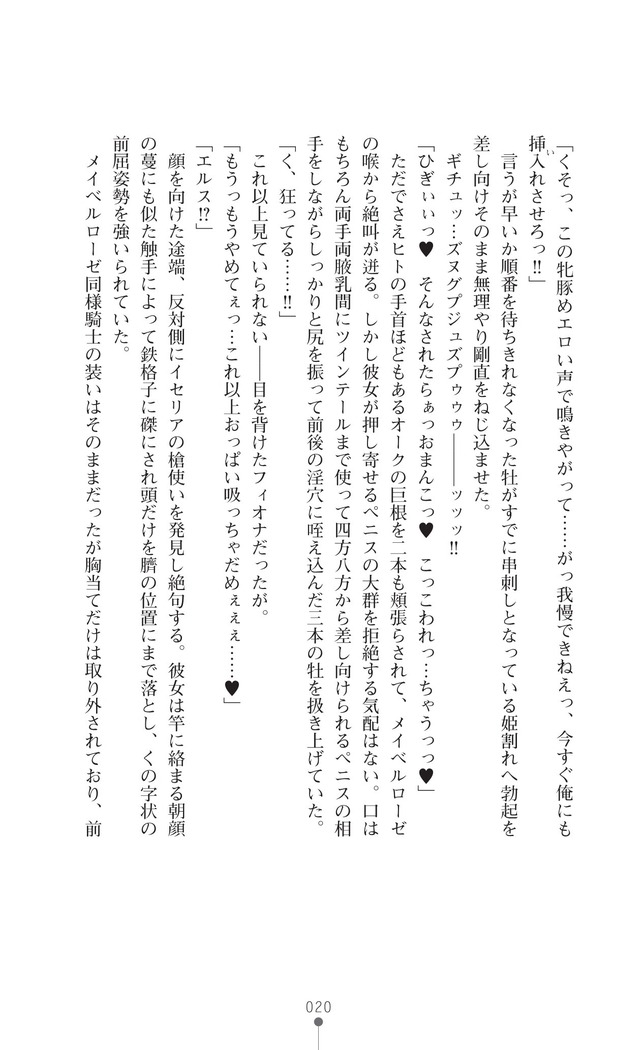 「くそっ、この牝豚めエロい声で鳴きやがって……がっ我慢できねえっ、今すぐ俺にも
挿入れさせろっ‼」
い
言うが早いか順番を待ちきれなくなった牡がすでに串刺しとなっている姫割れへ勃起を
差し向けそのまま無理やり剛直をねじ込ませた。
ギチュッ…ズヌグプジュズプゥゥゥ――――ッッッ‼
「ひぎぃぃっ♥　そんなされたらぁっおまんこっ♥　こっこわれっ…ちゃうっっ♥」
ただでさえヒトの手首ほどもあるオークの巨根を二本も頬張らされて、メイベルローゼ
の喉から絶叫が迸る。しかし彼女が押し寄せるペニスの大群を拒絶する気配はない。口は
もちろん両手両腋乳間にツインテールまで使って四方八方から差し向けられるペニスの相
手をしながらしっかりと尻を振って前後の淫穴に咥え込んだ三本の牡を扱き上げていた。
「く、狂ってる……‼」
これ以上見ていられない――目を背けたフィオナだったが。
「もうっもうやめてぇっ…これ以上おっぱい吸っちゃだめぇぇぇ……♥」
「エルス⁉」
顔を向けた途端、反対側にイセリアの槍使いを発見し絶句する。彼女は竿に絡まる朝顔
の蔓にも似た触手によって鉄格子に磔にされ頭だけを臍の位置にまで落とし、くの字状の
前屈姿勢を強いられていた。
メイベルローゼ同様騎士の装いはそのままだったが胸当てだけは取り外されており、前
020